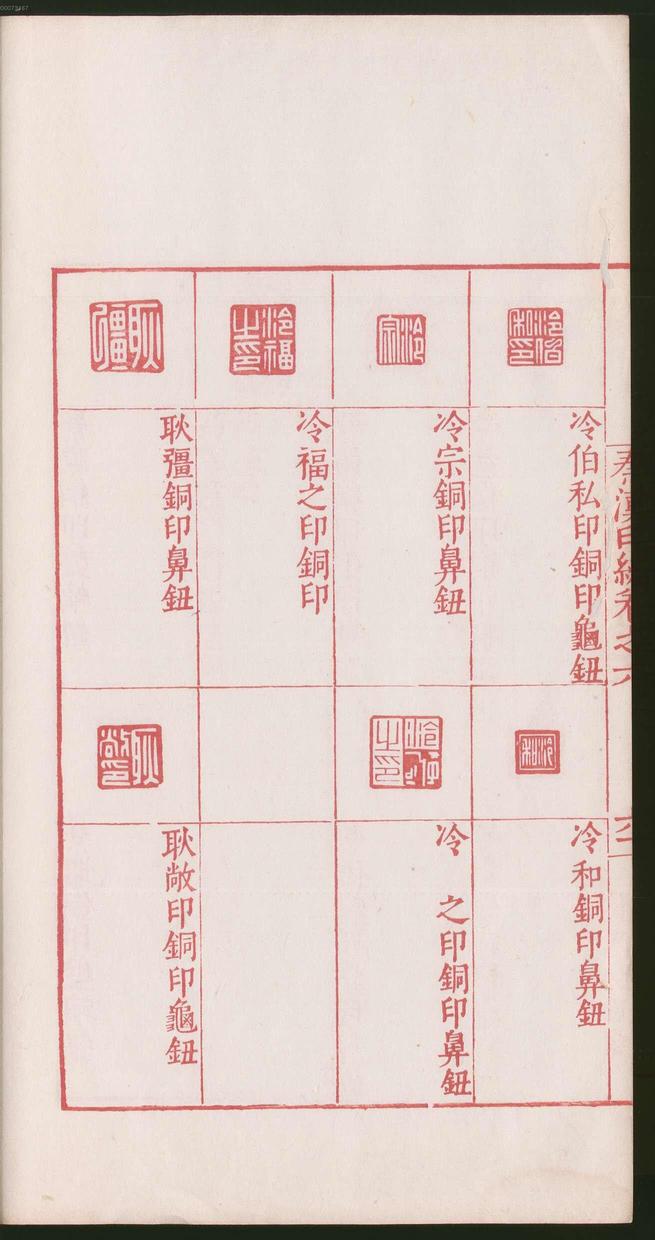 00073167
秦漢印統卷之六
冷伯私印銅印龜鈕
冷和銅印鼻鈕
冷宗銅印鼻鈕
冷 之印銅印鼻鈕
冷福之印銅印
耿彊銅印鼻鈕
耿敞印銅印龜鈕